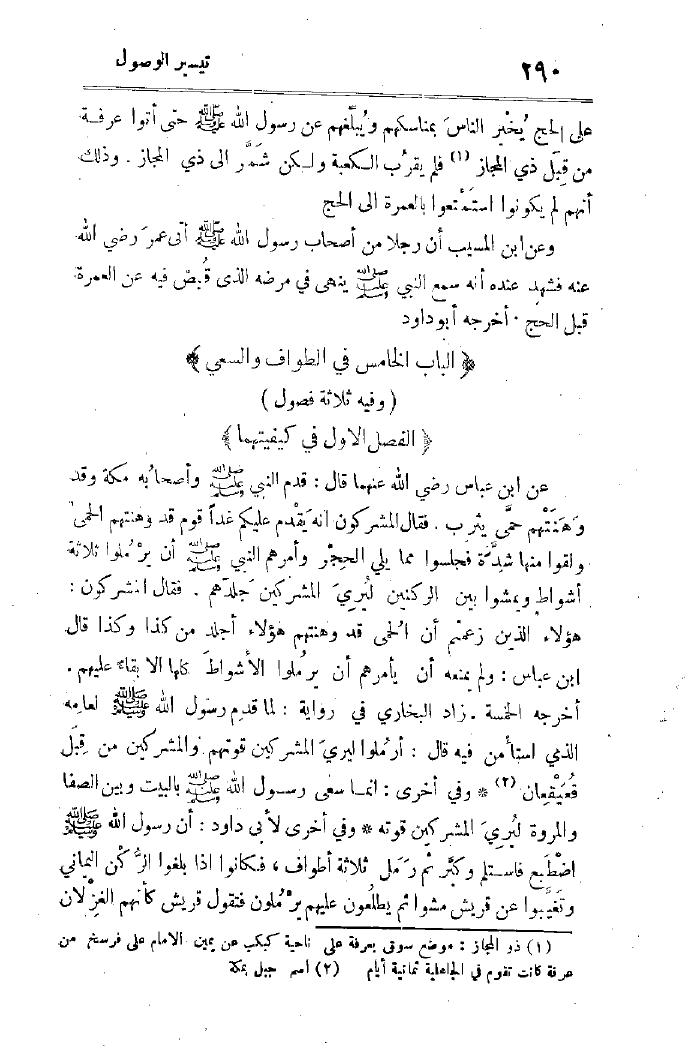 ٢٩٠ تيسير الوصول
على الحج يُخْبِر الناسَ بمناسكهم ويُبلِّغهم عن رسول الله ﷺ حتى أتوا عرفة
من قِبَل ذي المجاز (١) فلم يقرُب الكعبة ولكن شَمَّر الى ذي المجاز . وذلك
أنهم لم يكونوا استَمتعوا بالعمرة الى الحج
وعن ابن المسيب أن رجلا من أصحاب رسول الله ﷺ أتى عمرَ رضي الله
عنه فشهد عنده أنه سمع النبي ﷺ ينهى في مرضه الذى قُبض فيه عن العمرة
قبل الحج . أخرجه أبو داود
﴿ الباب الخامس في الطواف والسعي ﴾
( وفيه ثلاثة فصول )
﴿ الفصل الاول في كيفيتهما ﴾
عن ابن عباس رضي الله عنهما قال : قدم النبي ﷺ وأصحابُه مكة وقد
وَهَنَتْهم حمَّى يثرب . فقال المشركون انه يَقْدم عليكم غداً قوم قد وهنتهم الحمى
ولقوا منها شدَّة فجلسوا مما يلي الحِجْر وأمرهم النبي ﷺ أن يرْمُلوا ثلاثة
أشواط ويمشوا بين الركنين ليُريَ المشركين جلَدَهم . فقال المشركون :
هؤلاء الذين زعمتم أن الحمى قد وهنتهم هؤلاء أجلد من كذا وكذا قال
ابن عباس : ولم يمنعه أن يأمرهم أن يرمُلوا الأشواطَ كلها الا الابقاءُ عليهم .
أخرجه الخمسة . زاد البخاري في رواية : لما قدم رسول الله ﷺ لعامه
الذي استأمن فيه قال : أرمُلوا ليريَ المشركين قوتهم والمشركين من قِبَل
قُعَيْقِعان (٢) * وفي أخرى : انما سعى رسول الله ﷺ بالبيت وبين الصفا
والمروة ليُريَ المشركين قوته * وفي أخرى لأبي داود : أن رسول الله ﷺ
اضْطَبع فاستلم وكبَّر ثم رَمَل ثلاثة أطواف ، فكانوا اذا بلغوا الرُّكْن اليماني
وتغيَّبوا عن قريش مشوا ثم يطلُعون عليهم يرْمُلون فتقول قريش كأنهم الغِزْلان
(١) ذو المجاز : موضع سوق بعرفة على ناحية كبكب عن يمين الامام على فرسخ من
عرفة كانت تقوم في الجاهلية ثمانية أيام (٢) اسم جبل بمكة